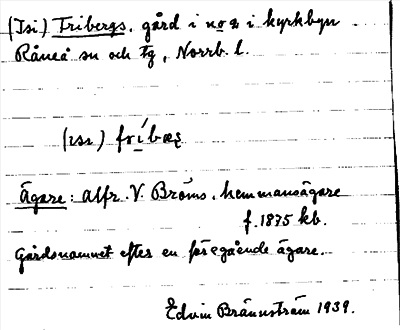 (Isi) Fribergs, gård i no 2 i kyrkbyn
Råneå sn och tg, Norrb. l.
(ısı) fríbæ
Ägare: Alfr. V. Broms, hemmansägare
f. 1875 kb.
Gårdsnamnet efter en föregående ägare.
Edvin Brännström 1939.